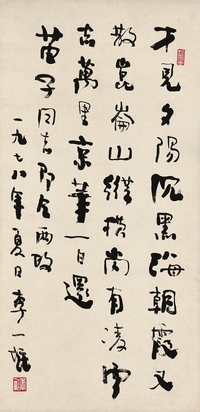 才見夕陽沉黑海朝霞又
散崑崙山縱橫尚有凌雲
志萬里京華一日還
苗子同志兩政
一九七八年夏日李一氓